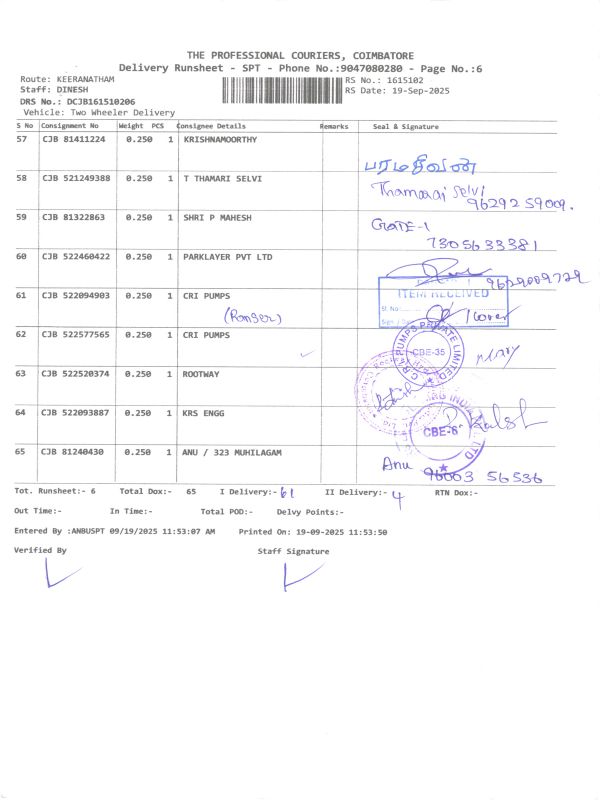 THE PROFESSIONAL COURIERS, COIMBATORE
Delivery Runsheet - SPT - Phone No.:9047080280 - Page No.:6
Route: KEERANATHAM
RS No.: 1615102
Staff: DINESH
RS Date: 19-Sep-2025
DRS No.: DCJB161510206
Vehicle: Two Wheeler Delivery
S No Consignment No Weight PCS Consignee Details Remarks Seal & Signature
57 CJB 81411224 0.250 1 KRISHNAMOORTHY
பரமசிவன்
58 CJB 521249388 0.250 1 T THAMARI SELVI
Thamarai Selvi
9629259009.
59 CJB 81322863 0.250 1 SHRI P MAHESH
GATE-1
7305633381
60 CJB 522460422 0.250 1 PARKLAYER PVT LTD
9629009729
61 CJB 522094903 0.250 1 CRI PUMPS
ITEM RECEIVED
(Ranser)
62 CJB 522577565 0.250 1 CRI PUMPS
C.R.I. PUMPS PRIVATE LIMITED
CBE-35
63 CJB 522520374 0.250 1 ROOTWAY
64 CJB 522093887 0.250 1 KRS ENGG
CBE-6
65 CJB 81240430 0.250 1 ANU / 323 MUHILAGAM
Anu
96003 56536
Tot. Runsheet:- 6 Total Dox:- 65 I Delivery:- 61 II Delivery:- 4 RTN Dox:-
Out Time:- In Time:- Total POD:- Delvy Points:-
Entered By :ANBUSPT 09/19/2025 11:53:07 AM Printed On: 19-09-2025 11:53:50
Verified By Staff Signature